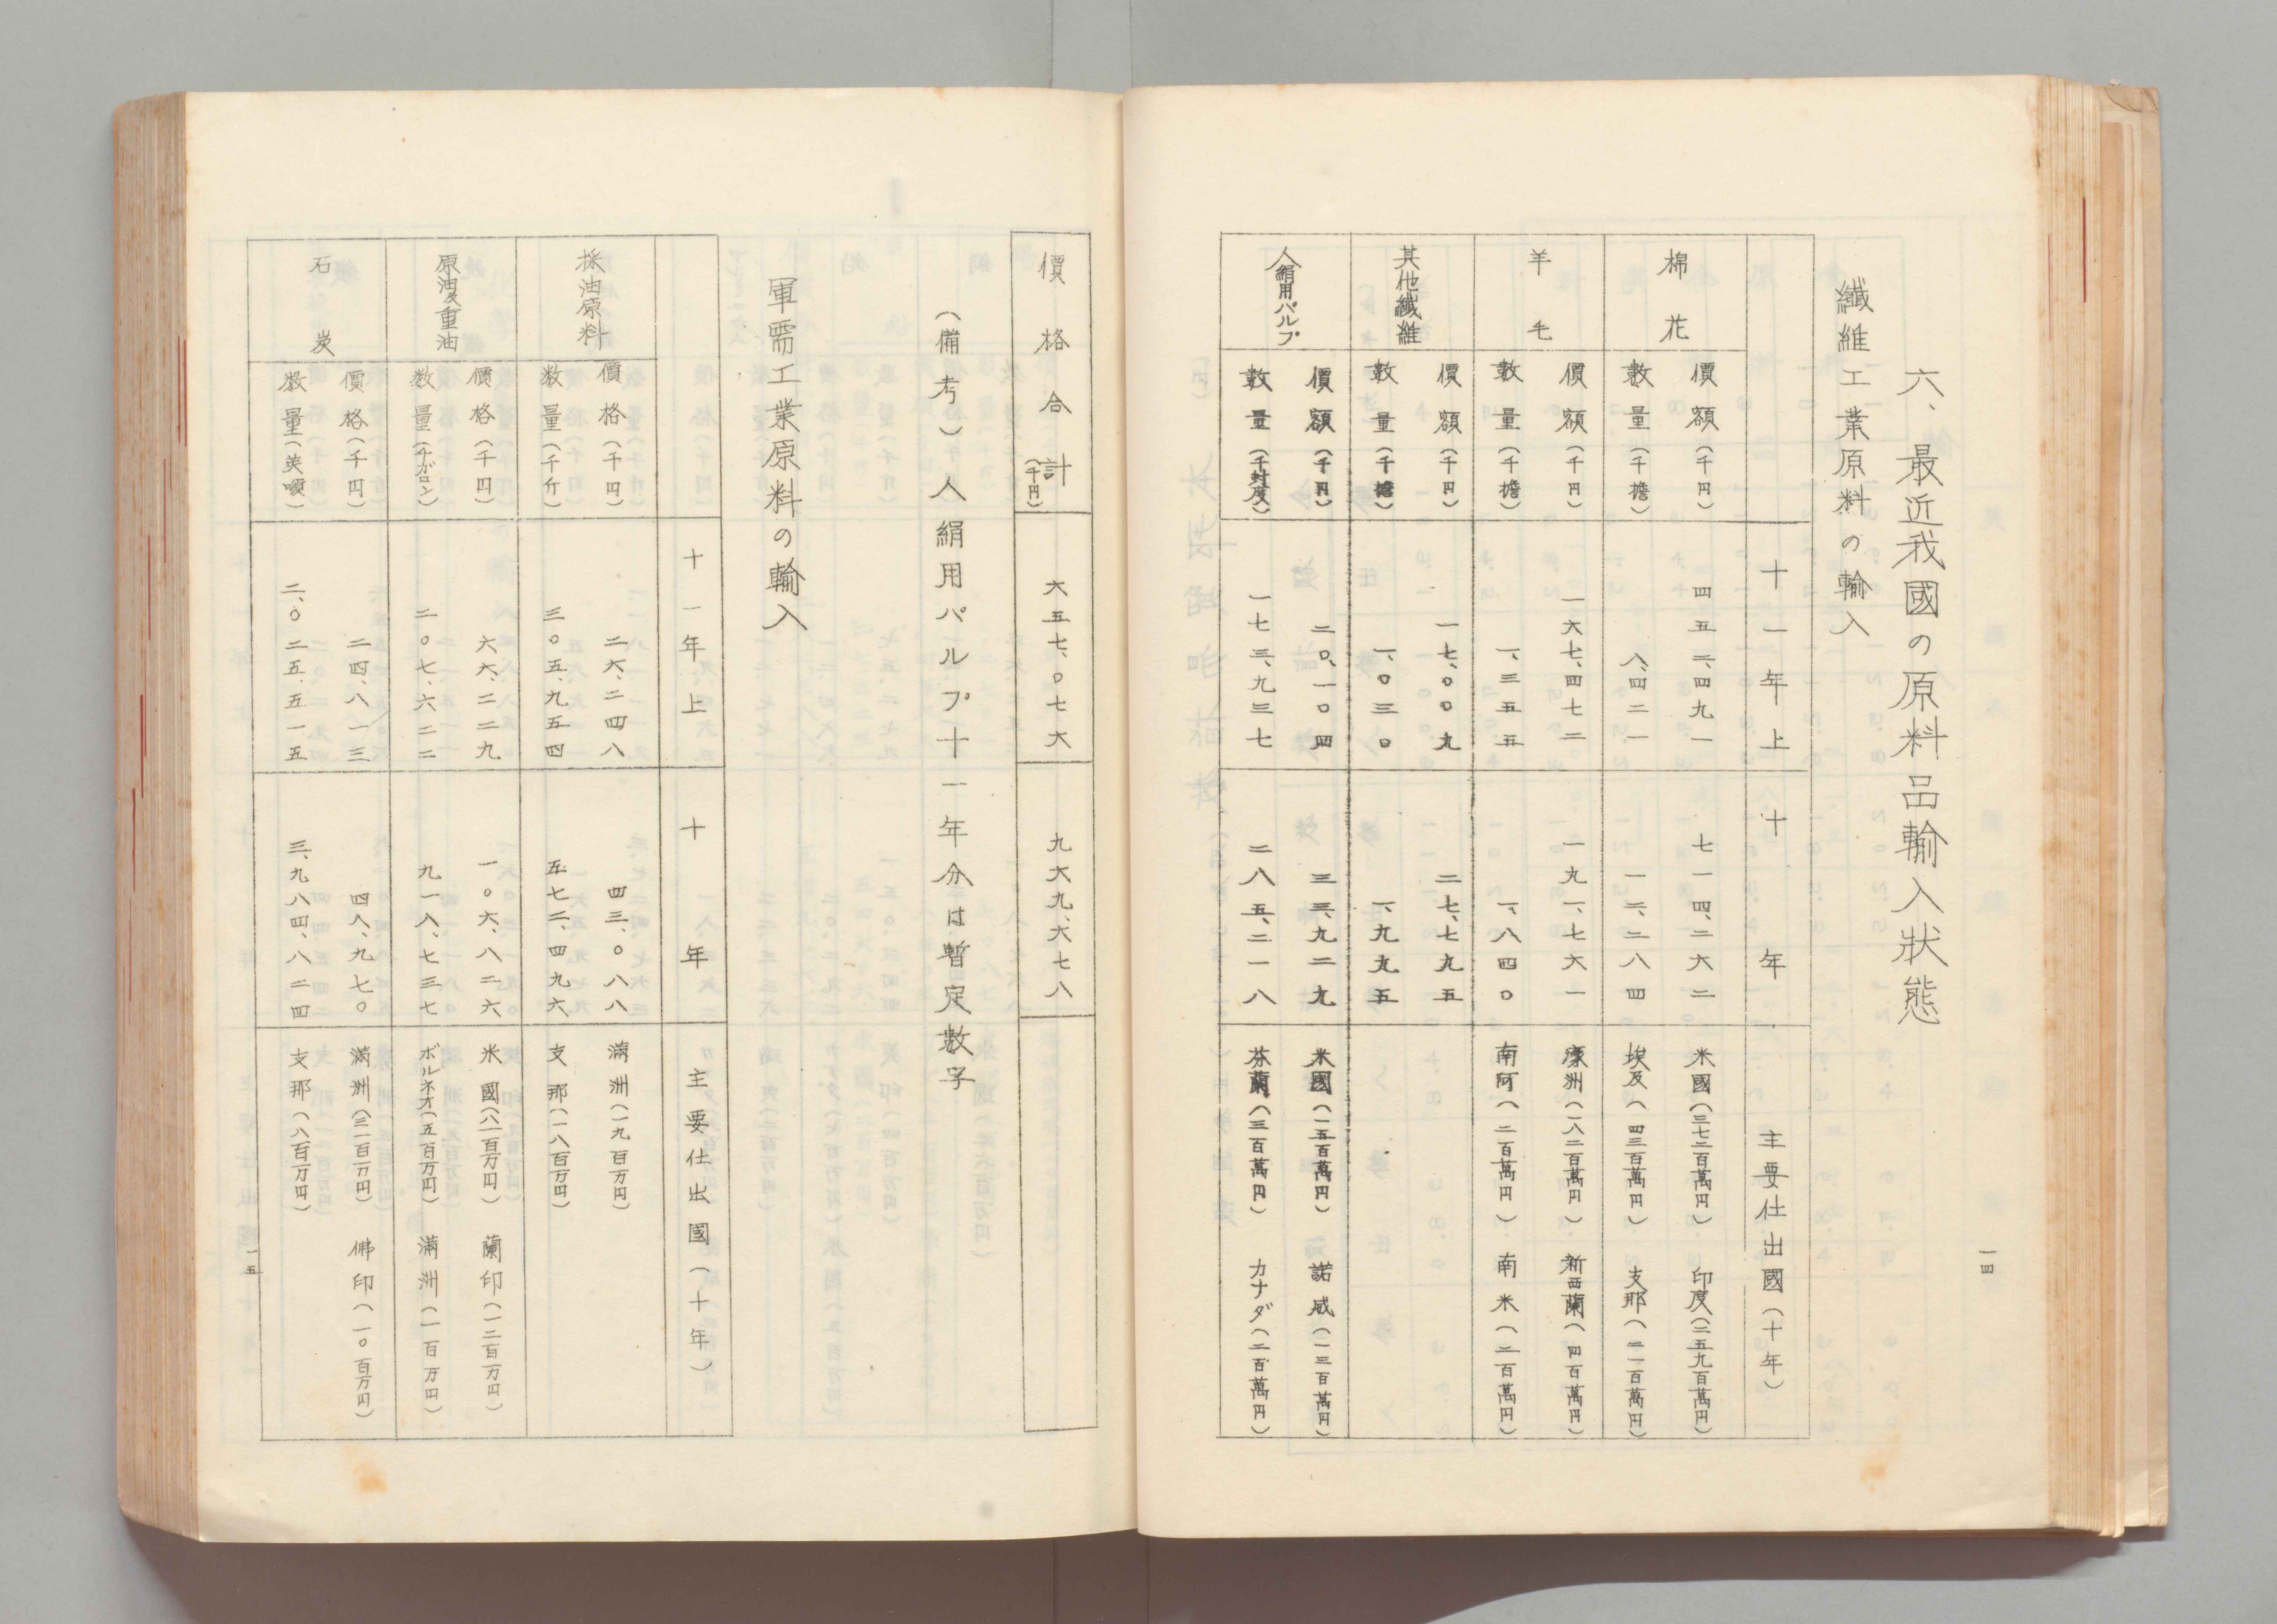 一四
六、最近我國の原料品輸入狀態
纖維工業原料の輸入
十一年上
十年
主要仕出國(十年)
棉花
價額(千円)
四五二、四九一
七一四、二六二
米國(三七二百萬円)
印度(二五九百萬円)
數量(千擔)
八、四二一
一二、二八四
埃及(四三百萬円)
支那(二一百萬円)
羊毛
價額(千円)
一六七、四七二
一九一、七六一
濠洲(一八二百萬円)
新西蘭(四百萬円)
數量(千擔)
一、三五五
一、八四〇
南阿(二百萬円)
南米(二百萬円)
其他纖維
價額(千円)
一七、〇〇九
二七、七九五
數量(千擔)
一、〇三〇
一、九九五
人絹用パルプ
價額(千円)
二〇、一〇四
三三、九二九
米國(一五百萬円)
諾威(一三百萬円)
數量(千封度)
一七三、九三七
二八五、二一八
芬蘭(三百萬円)
カナダ(二百萬円)
價格合計(千円)
六五七、〇七六
九六九、六七八
(備考)人絹用パルプ十一年分は暫定数字
軍需工業原料の輸入
十一年上
十年
主要仕出國(十年)
採油原料
價格(千円)
二六、二四八
四三、〇八八
滿洲(一九百万円)
数量(千斤)
三〇五、九五四
五七二、四九六
支那(一八百万円)
原油及重油
價格(千円)
六六、二二九
一〇六、八二六
米國(八一百万円)
蘭印(一二百万円)
数量(千ガロン)
二〇七、六二二
九一八、七三七
ボルネオ(五百万円)
滿洲(一百万円)
石炭
價格(千円)
二四、八一三
四八、九七〇
滿洲(三一百万円)
佛印(一〇百万円)
数量(英噸)
二、〇二五、五一五
三、九八四、八二四
支那(八百万円)
一五